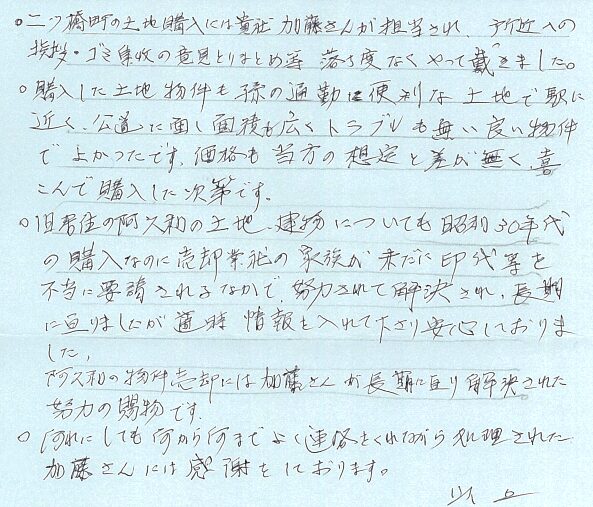 ○二ツ橋町の土地購入には貴社 加藤さんが担当され、予め近への
挨拶・ゴミ集収の意見とりまとめ等 落ち度なくやって戴きました。
○購入した土地物件も孫の通勤に便利な土地で駅に
近く、公道に面し面積も広くトラブルも無い良い物件
でよかったです。価格も当方の想定と差が無く、喜
こんで購入した次第です。
○旧居住の阿久和の土地、建物についても昭和30年代
の購入なのに売却業社の家族が未だに印代等を
不当に要請されるなかで、努力されて解決され、長期
に亘りましたが適時 情報を入れて下さり安心しておりま
した。
阿久和の物件売却には加藤さんが長期に亘り解決された
努力の賜物です。
○何れにしても何から何までよく連絡をくれながら処理された
加藤さんには感謝をしております。
以上